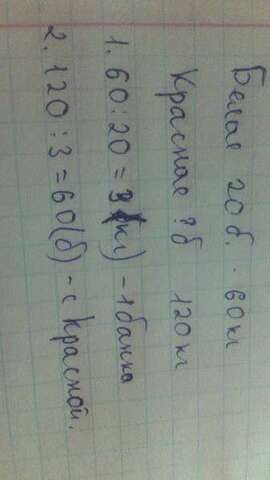 Белая 20 б. - 60 кг
Красная ? б 120 кг
1. 60 : 20 = 3 (кг) - 1 банка
2. 120 : 3 = 60 (б) - с красной.